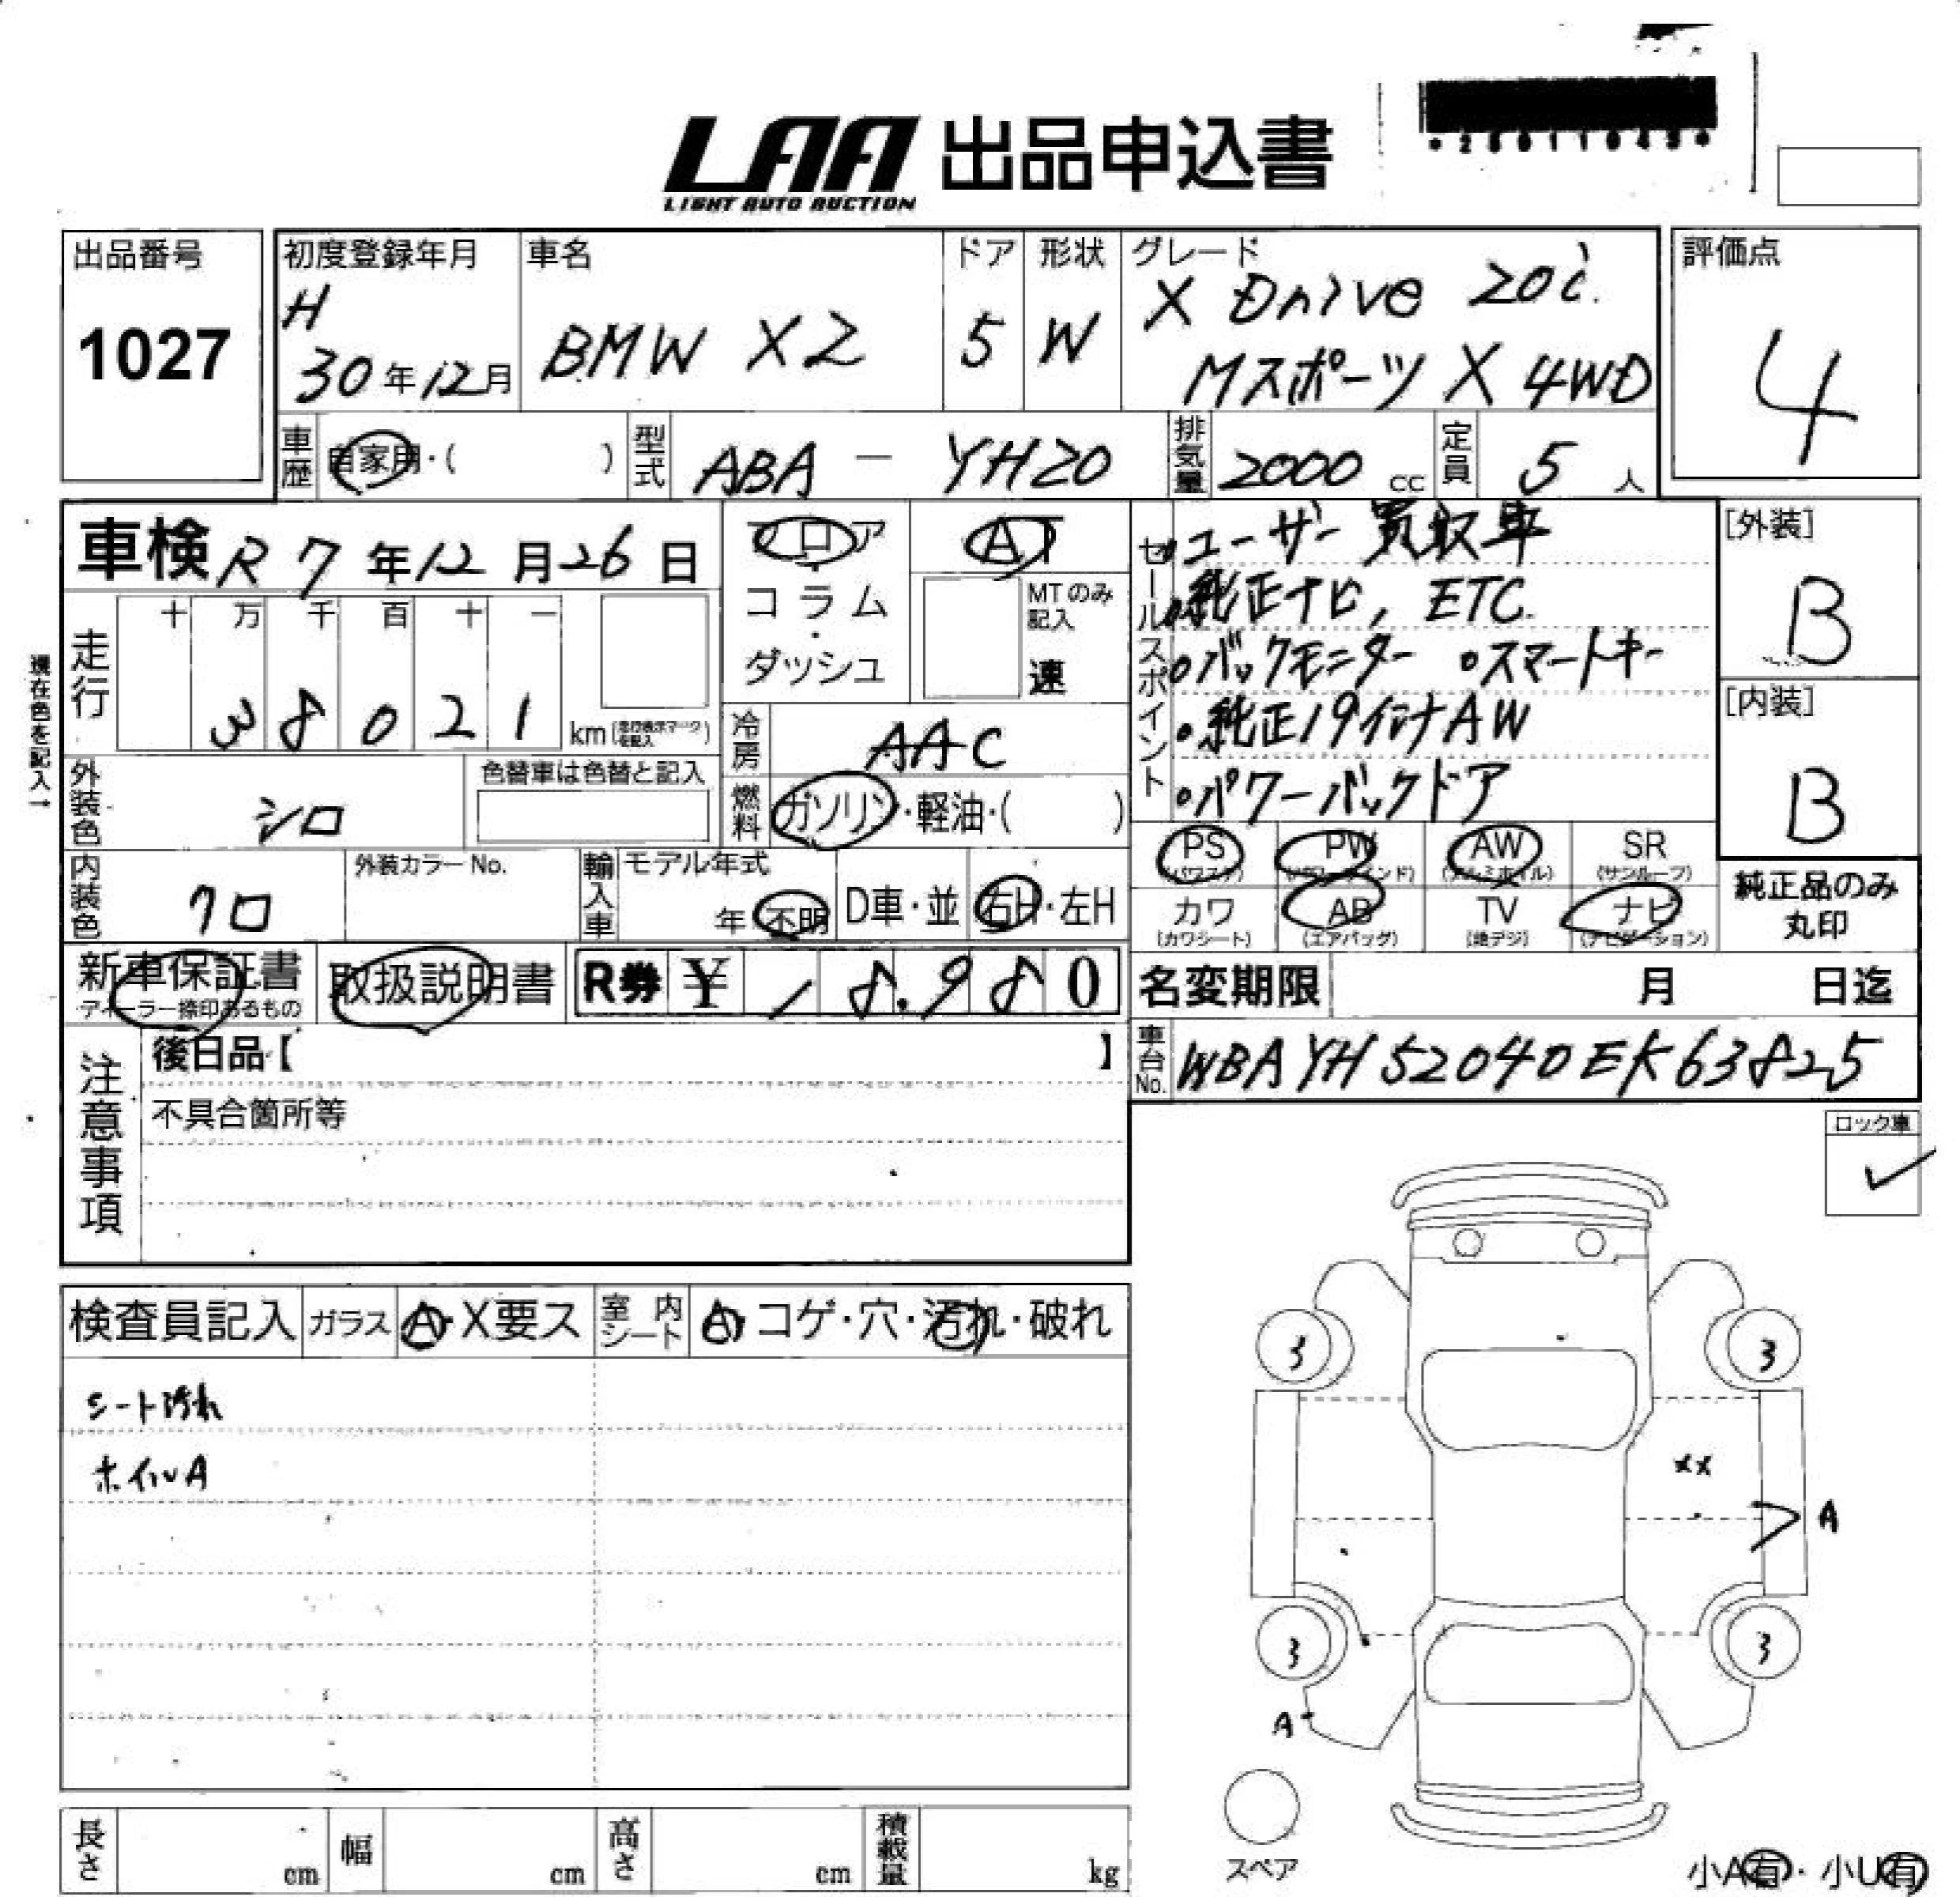 LAA 出品申込書
LIGHT AUTO AUCTION
出品番号
1027
初度登録年月
H
30年12月
車名
BMW X2
ドア
5
形状
W
グレード
X Drive 20i.
Mスポーツ X 4WD
評価点
4
車歴
自家用・( )
型式
ABA - YH20
排気量
2000 cc
定員
5 人
車検 R 7年12月26日
フロア
・
コラム
・
ダッシュ
AT
MTのみ
記入
速
セールスポイント
・ユーザー買取車
・純正ナビ, ETC.
・バックモニター ・スマートキー
・純正19インチAW
・パワーバックドア
[外装]
B
[内装]
B
現在色を記入→
走行
十 万 千 百 十 一
3 8 0 2 1
km
冷房
AAC
燃料
ガソリン・軽油・( )
外装色
シロ
色替車は色替と記入
内装色
クロ
外装カラーNo.
輸入車
モデル年式
年 不明
D車・並
右H・左H
PS
(パワステ)
PW
(パワーウインド)
AW
(アルミホイル)
SR
(サンルーフ)
カワ
(カワシート)
AB
(エアバッグ)
TV
(地デジ)
ナビ
(ナビゲーション)
純正品のみ
丸印
新車保証書
ディーラー捺印あるもの
取扱説明書
R券 ¥ 18,980
名変期限 月 日迄
車台No.
WBAYH52040EK63825
注意事項
後日品【 】
不具合箇所等
ロック車
✓
検査員記入
ガラス
A・X要ス
室内シート
A・コゲ・穴・汚れ・破れ
シート汚れ
ホイルA
3
3
××
A
3
3
A
スペア
小A有・小U有
長さ
cm
幅
cm
高さ
cm
積載量
kg